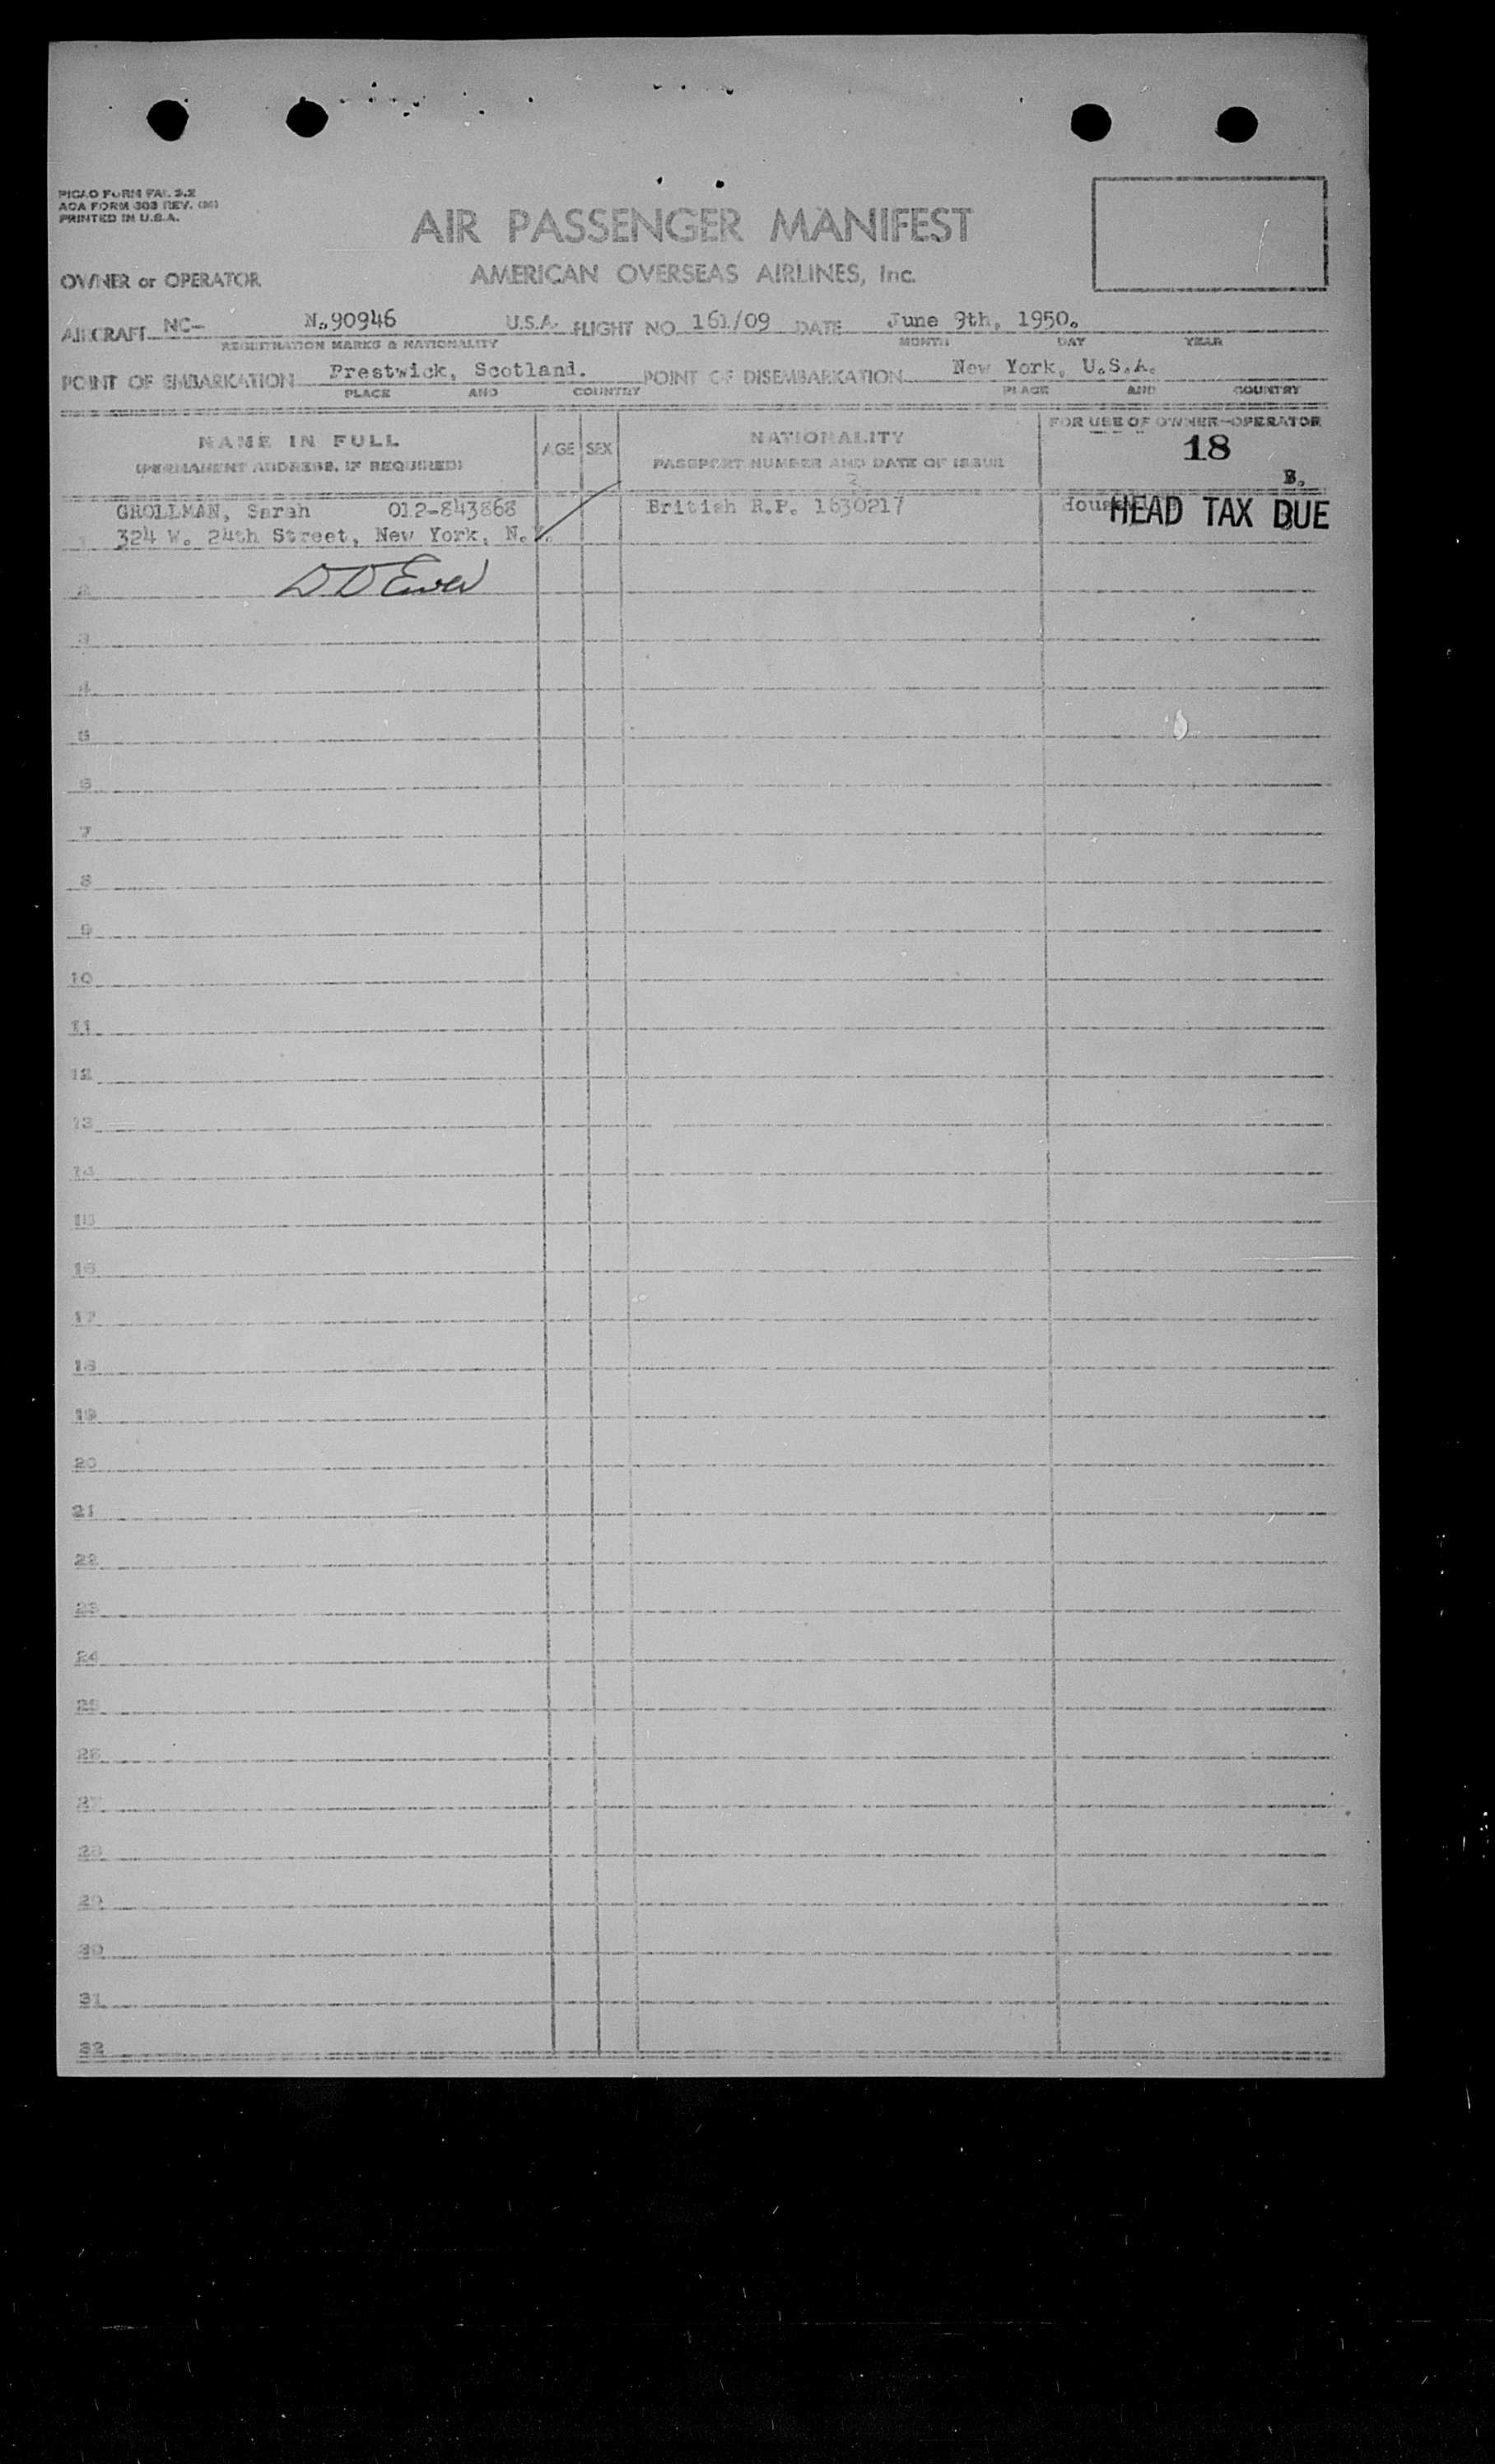 PICAO FORM FAL 2.2
AOA FORM 303 REV. (M)
PRINTED IN U.S.A.
AIR PASSENGER MANIFEST
OWNER or OPERATOR AMERICAN OVERSEAS AIRLINES, Inc.
AIRCRAFT NC- N.90946 U.S.A. FLIGHT NO. 161/09 DATE June 9th, 1950.
REGISTRATION MARKS & NATIONALITY MONTH DAY YEAR
POINT OF EMBARKATION Prestwick, Scotland. POINT OF DISEMBARKATION New York, U.S.A.
PLACE AND COUNTRY PLACE AND COUNTRY
NAME IN FULL AGE SEX NATIONALITY FOR USE OF OWNER-OPERATOR
(PERMANENT ADDRESS, IF REQUIRED) PASSPORT NUMBER AND DATE OF ISSUE 18
B.
GROLLMAN, Sarah 012-843868 British R.P. 1630217 HEAD TAX DUE
1 324 W. 24th Street, New York, N.Y.
2
3
4
5
6
7
8
9
10
11
12
13
14
15
16
17
18
19
20
21
22
23
24
25
26
27
28
29
30
31
32